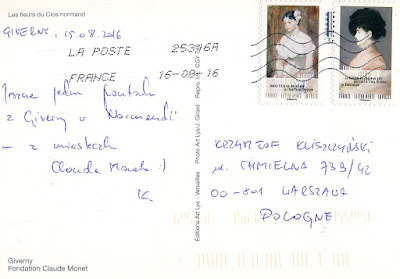 Les fleurs du Clos normand
GIVERNY, 15.08.2016
LA POSTE 25346A
FRANCE 16-08-16
Jeszcze jedna pocztówka
z Giverny w Normandii
– z miasteczka
Claude Moneta :)
K.
KRZYSZTOF KLISZCZYŃSKI
ul. CHMIELNA 73B/42
00-801 WARSZAWA
POLOGNE
Editions Art Lys - Versailles Photo Art Lys/J. Girard
Giverny
Fondation Claude Monet